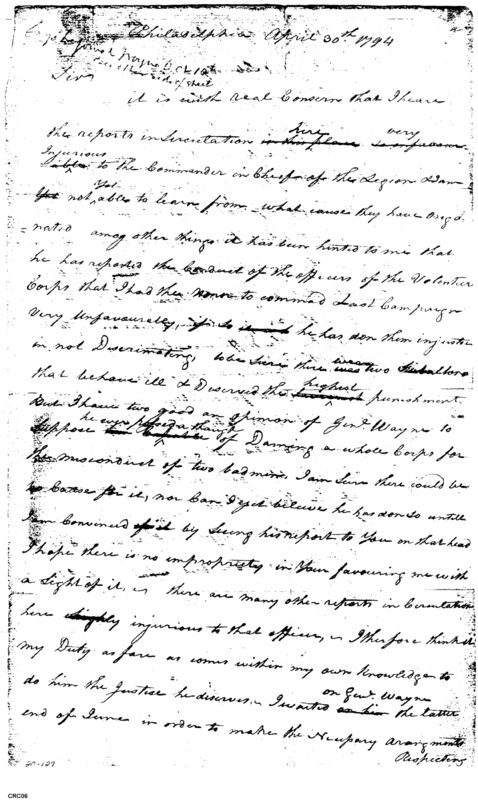 Philadelphia April 30th 1794
Sir
it is with real Concern that I hear
here very
the reports in Circulation in this place is unfavour
Injurious
able to the Commander in Cheef of the Legion & am
Yet
Yet not able to learn from what cause they have orega
=nated amog other things it has been hinted to me that
he has reported the Conduct of the officers of the Volenter
Corps that I had the Honor to command Last Campaign
very unfavourably, if so it is he has don them injustice
in not Discrimating, to be Sure there was two Subalterns
highest
that behave ill & Deserved the punishment
But I have two good an opinion of Genl. Wayne to
Suppose of Daming a whole Corps for
the misconduct of two bad men. I am Sure there could be
no Cause for it, nor Can I yet beleive he has don So untill
I am Convinced of it by Seeing his report to You on that head
I hope there is no impropriety in Your favouring me with
a Sight of it, as there are many other reports in Circulation
here highly injurious to that officer, I therfore think it
my Duty as fare as comes within my own knowledge to
on Genl. Wayne
do him the Justice he deserves. I waited on him the latter
end of June in order to make the Nesspary arangments
Respecting
20-127
CRC06